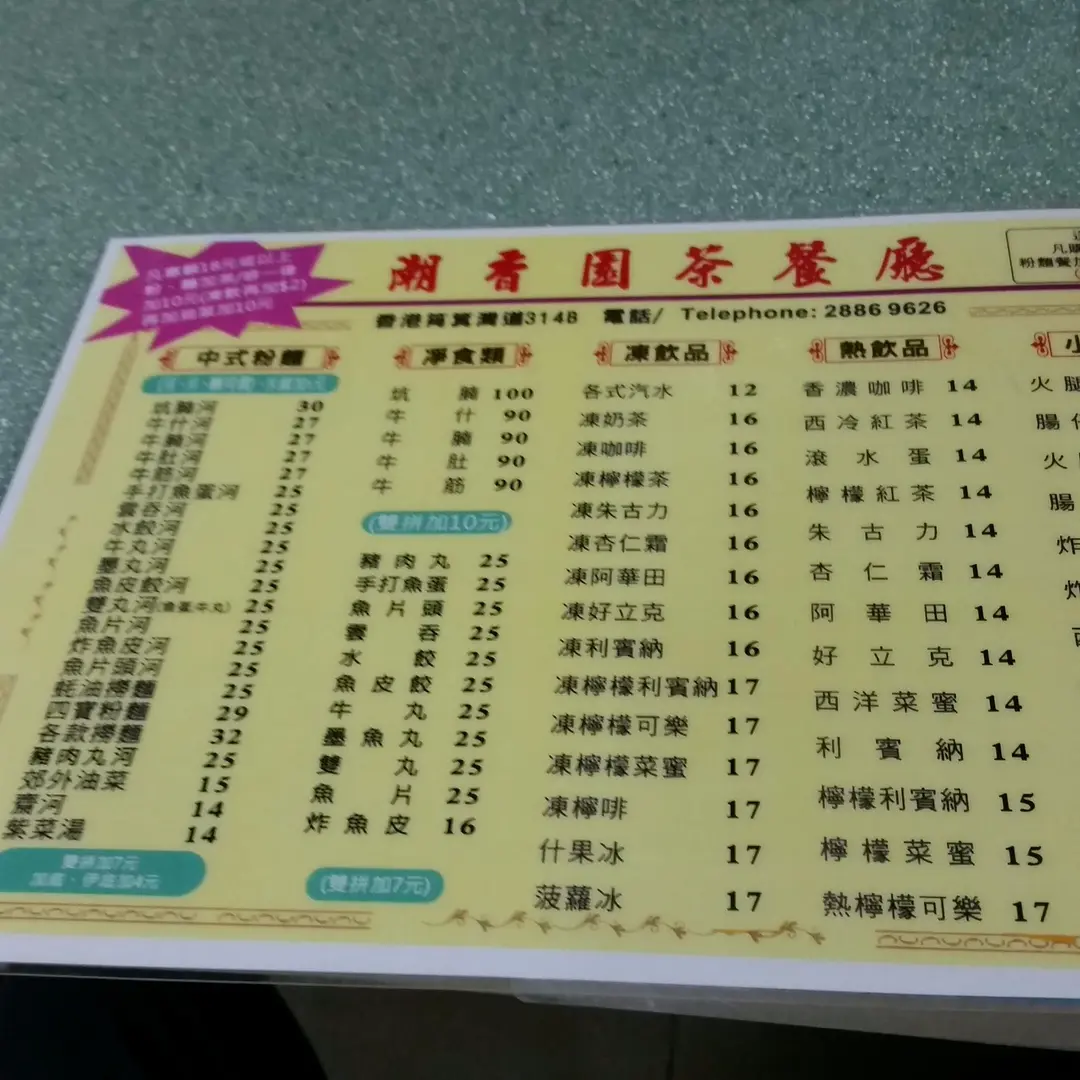 潮香園茶餐廳
香港筲箕灣道314B 電話/ Telephone: 2886 9626
凡惠顧18元或以上
加10元(凍飲再加$2)
再加油菜加10元
中式粉麵
坑腩河 30
牛什河 27
牛腩河 27
牛肚河 27
牛筋河 27
手打魚蛋河 25
雲吞河 25
水餃河 25
牛丸河 25
墨丸河 25
魚皮餃河 25
雙丸河(魚蛋,牛丸) 25
魚片河 25
炸魚皮河 25
魚片頭河 25
蚝油撈麵 25
四寶粉麵 29
各款撈麵 32
豬肉丸河 25
郊外油菜 15
齋河 14
紫菜湯 14
雙拼加7元
加底、伊底加4元
凈食類
坑腩 100
牛什 90
牛腩 90
牛肚 90
牛筋 90
(雙拼加10元)
豬肉丸 25
手打魚蛋 25
魚片頭 25
雲吞 25
水餃 25
魚皮餃 25
牛丸 25
墨魚丸 25
雙丸 25
魚片 25
炸魚皮 16
(雙拼加7元)
凍飲品
各式汽水 12
凍奶茶 16
凍咖啡 16
凍檸檬茶 16
凍朱古力 16
凍杏仁霜 16
凍阿華田 16
凍好立克 16
凍利賓納 16
凍檸檬利賓納 17
凍檸檬可樂 17
凍檸檬菜蜜 17
凍檸啡 17
什果冰 17
菠蘿冰 17
熱飲品
香濃咖啡 14
西冷紅茶 14
滾水蛋 14
檸檬紅茶 14
朱古力 14
杏仁霜 14
阿華田 14
好立克 14
西洋菜蜜 14
利賓納 14
檸檬利賓納 15
檸檬菜蜜 15
熱檸檬可樂 17
凡購
粉麵餐加
小
火腿
腸仔
火
腸
炸
炸